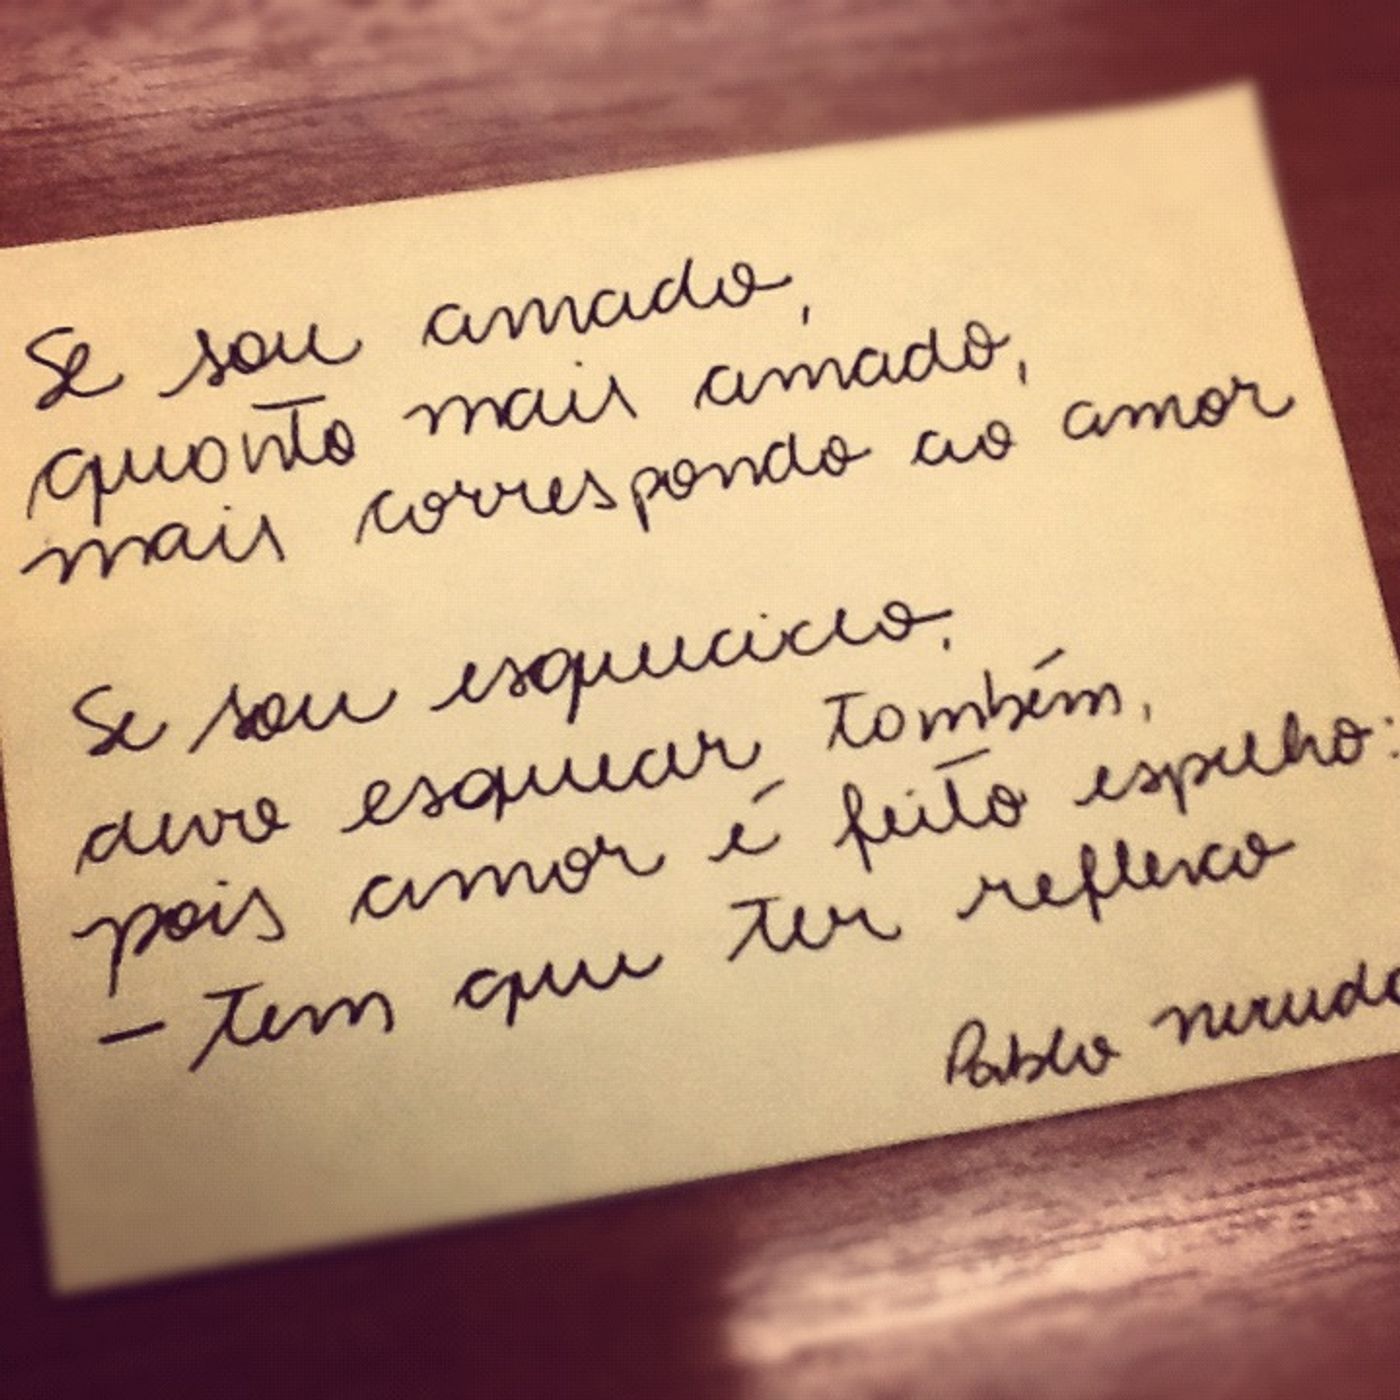 Se sou amado,
quanto mais amado,
mais correspondo ao amor
Se sou esquecido,
devo esquecer também,
pois amor é feito espelho:
- tem que ter reflexo
Pablo Neruda